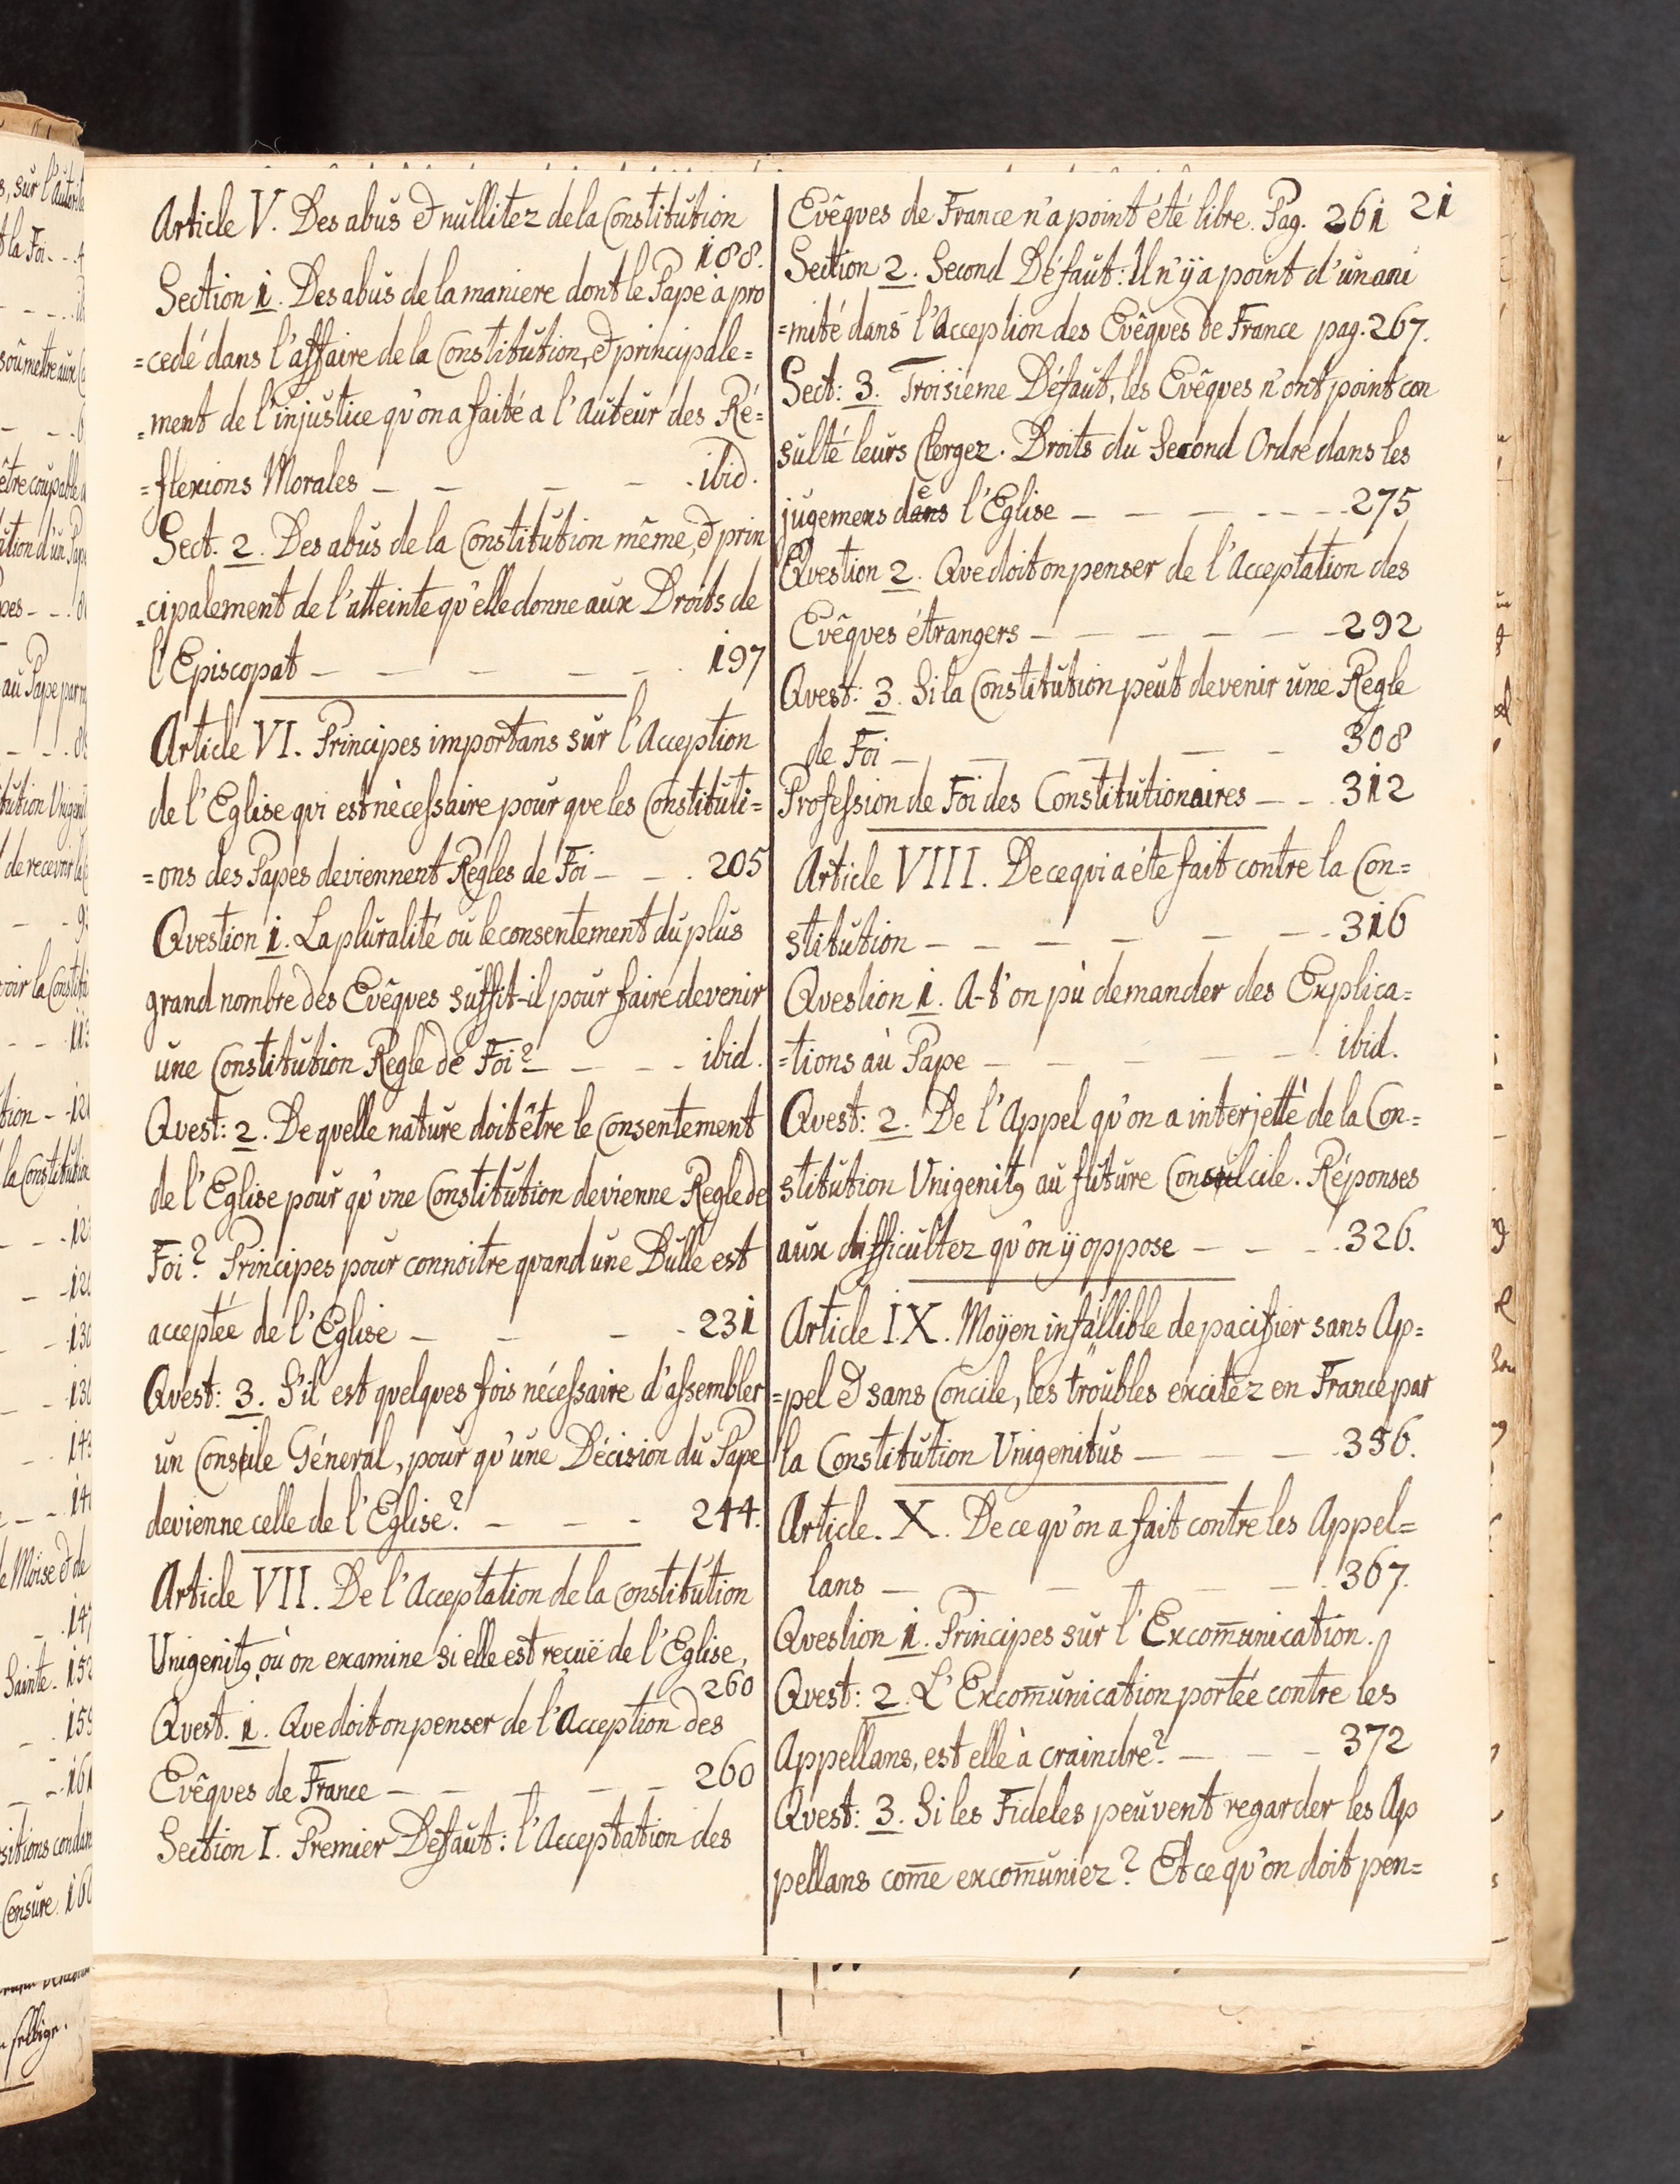 Article V. Des abus & nullitez de la Constitution
188.
Section 1. Des abus de la maniere dont le Pape a pro
=cedé dans l'affaire de la Constitution, & principale=
=ment de l'injustice qu'on a faité a l'Auteur des Ré=
=flexions Morales — — — — . ibid.
Sect. 2. Des abus de la Constitution même, & prin
=cipalement de l'atteinte qu'elle donne aux Droits de
l'Episcopat — — — — — — . 197
Article VI. Principes importans sur l'Acception
de l'Eglise qui est nècessaire pour que les Constituti=
=ons des Papes deviennent Regles de Foi — — . 205
Qvestion 1. La pluralité ou le consentement du plus
grand nombre des Evêqves suffit-il pour faire devenir
une Constitution Regle de Foi? — — — - ibid.
Qvest: 2. De quelle nature doit être le Consentement
de l'Eglise pour qu'vne Constitution devienne Regle de
Foi? Principes pour connoitre qvand une Bulle est
acceptée de l'Eglise — — — - 231
Qvest: 3. S'il est qvelqves fois nécessaire d'assembler
un Conscile Géneral, pour qv'une Décision du Pape
devienne celle de l'Eglise? — — - 244.
Article VII. De l'Acceptation de la constitution
Unigenitꝰ où on examine si elle est reçuë de l'Eglise,
260
Qvest. 1. Qve doit on penser de l'Acception des
Evêqves de France — — — — — 260
Section I. Premier Defaut: l'Acceptation des
Evêqves de France n'a point été libre. Pag. 261
21
Section 2. Second Défaut: Il n'ÿ a point d'unani
=mité dans l'Acception des Evêqves de France pag. 267.
Sect: 3. Troisieme Défaut, les Evêqves n'ont point con
sulté leurs Clergez. Droits du Second Ordre dans les
jugemens de l'Eglise — — — — - - 275
Qvestion 2. Qve doit on penser de l'Acceptation des
Evêqves étrangers — — — — — - 292
Qvest: 3. Si la Constitution peut devenir une Regle
de Foi — — — — — 308
Profession de Foi des Constitutionaires — - . 312
Article VIII. De ce qvi a éte fait contre la Con=
stitution — — — — — - . 316
Qvestion 1. A-t'on pù demander des Explica=
=tions aù Pape — — — — — . ibid.
Qvest: 2. De l'Appel qv'on a interjettè de la Con=
stitution Vnigenitꝰ au future Concile. Réponses
aux difficultez qv'on ÿ oppose — — - . 326.
Article IX. Moÿen infallible de pacifier sans Ap=
=pel & sans Concile, les troubles excitez en France par
la Constitution Vnigenitus — — - . 356.
Article. X. De ce qv'on a fait contre les Appel=
lans — — — — — . 367.
Qvestion 1. Principes sur l'Excom̄unication.
Qvest: 2. L'Excom̄unication portée contre les
Appellans, est elle à craindre? — — - 372
Qvest: 3. Si les Fideles peuvent regarder les Ap
pellans com̄e excom̄uniez? Et ce qv'on doit pen=